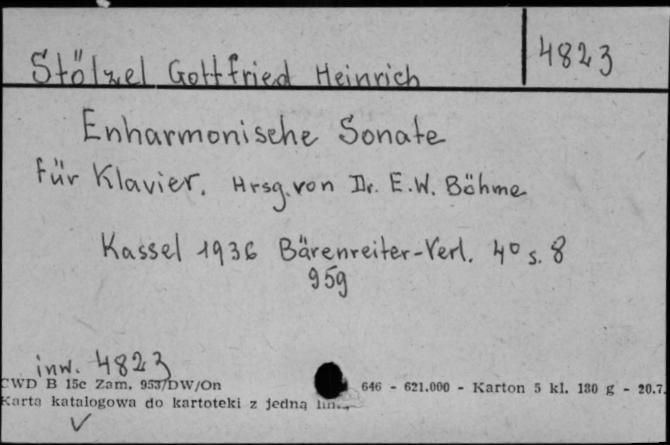 Stölzel Gottfried Heinrich 4823
Enharmonische Sonate
für Klavier. Hrsg. von Dr. E.W. Böhme
Kassel 1936 Bärenreiter-Verl. 4° s. 8
959
inw. 4823
CWD B 15c Zam. 953/DW/On 646 - 621.000 - Karton 5 kl. 180 g - 20.7.
Karta katalogowa do kartoteki z jedną